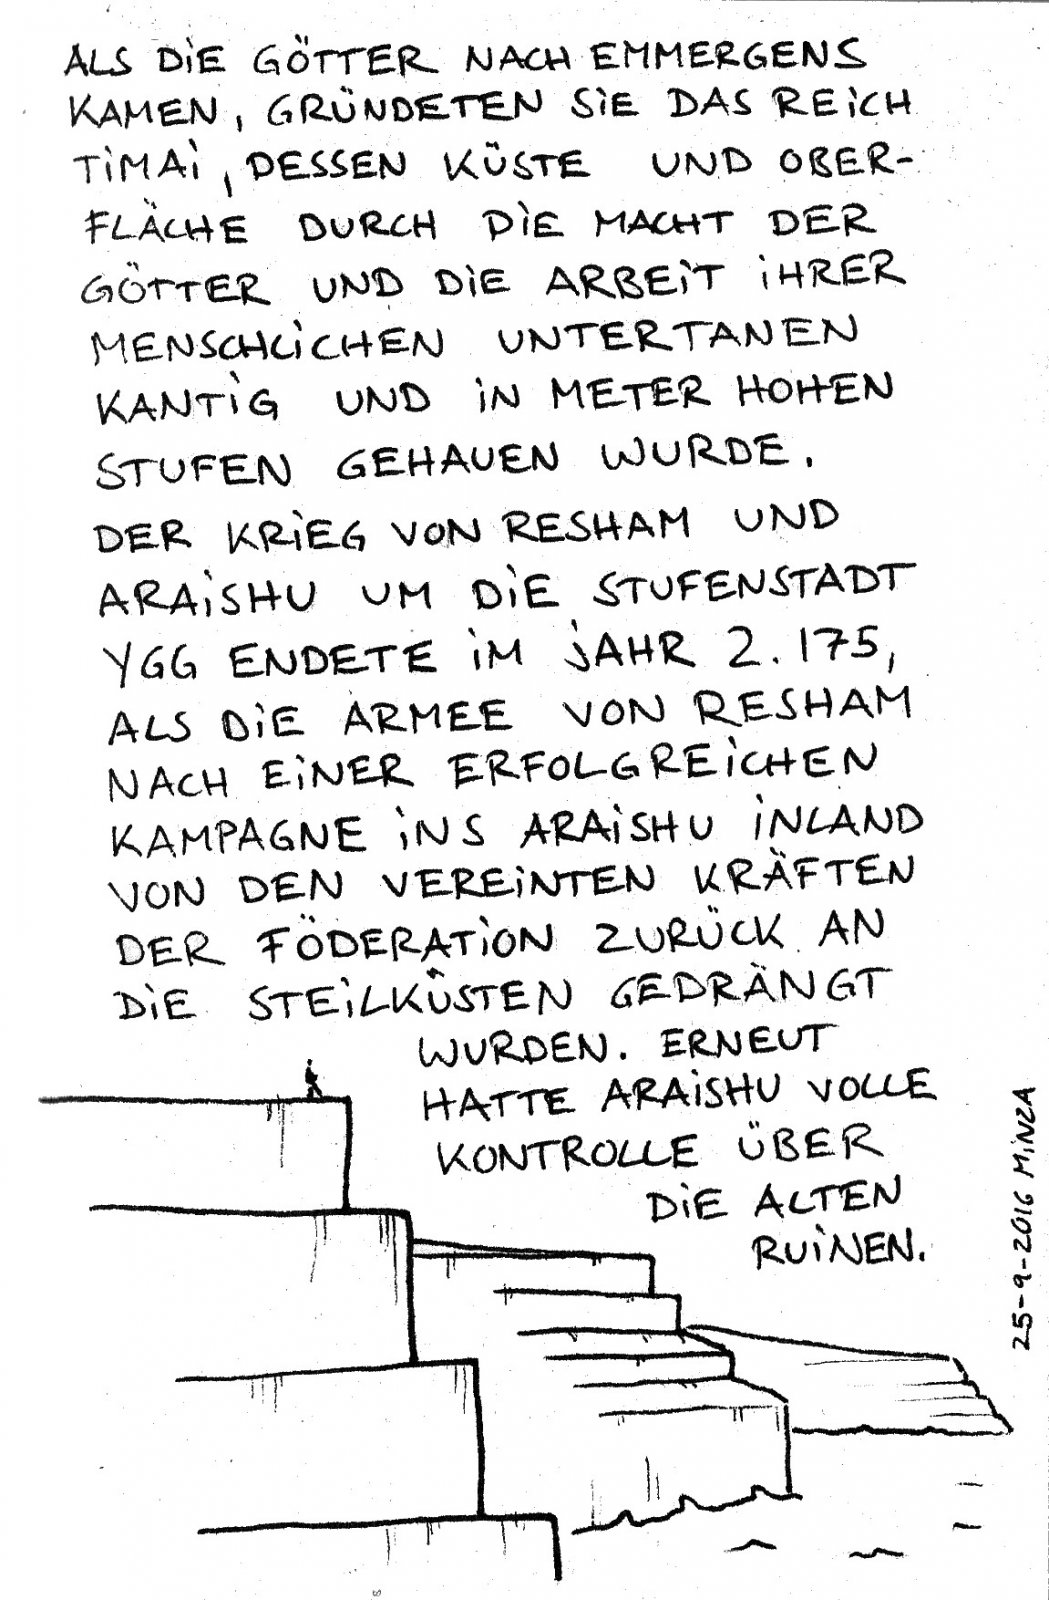 ALS DIE GÖTTER NACH EMMERGENS
KAMEN, GRÜNDETEN SIE DAS REICH
TIMAI, DESSEN KÜSTE UND OBER-
FLÄCHE DURCH DIE MACHT DER
GÖTTER UND DIE ARBEIT IHRER
MENSCHLICHEN UNTERTANEN
KANTIG UND IN METER HOHEN
STUFEN GEHAUEN WURDE.
DER KRIEG VON RESHAM UND
ARAISHU UM DIE STUFENSTADT
YGG ENDETE IM JAHR 2.175,
ALS DIE ARMEE VON RESHAM
NACH EINER ERFOLGREICHEN
KAMPAGNE INS ARAISHU INLAND
VON DEN VEREINTEN KRÄFTEN
DER FÖDERATION ZURÜCK AN
DIE STEILKÜSTEN GEDRÄNGT
WURDEN. ERNEUT
HATTE ARAISHU VOLLE
KONTROLLE ÜBER
DIE ALTEN
RUINEN.
25-9-2016 MINZA